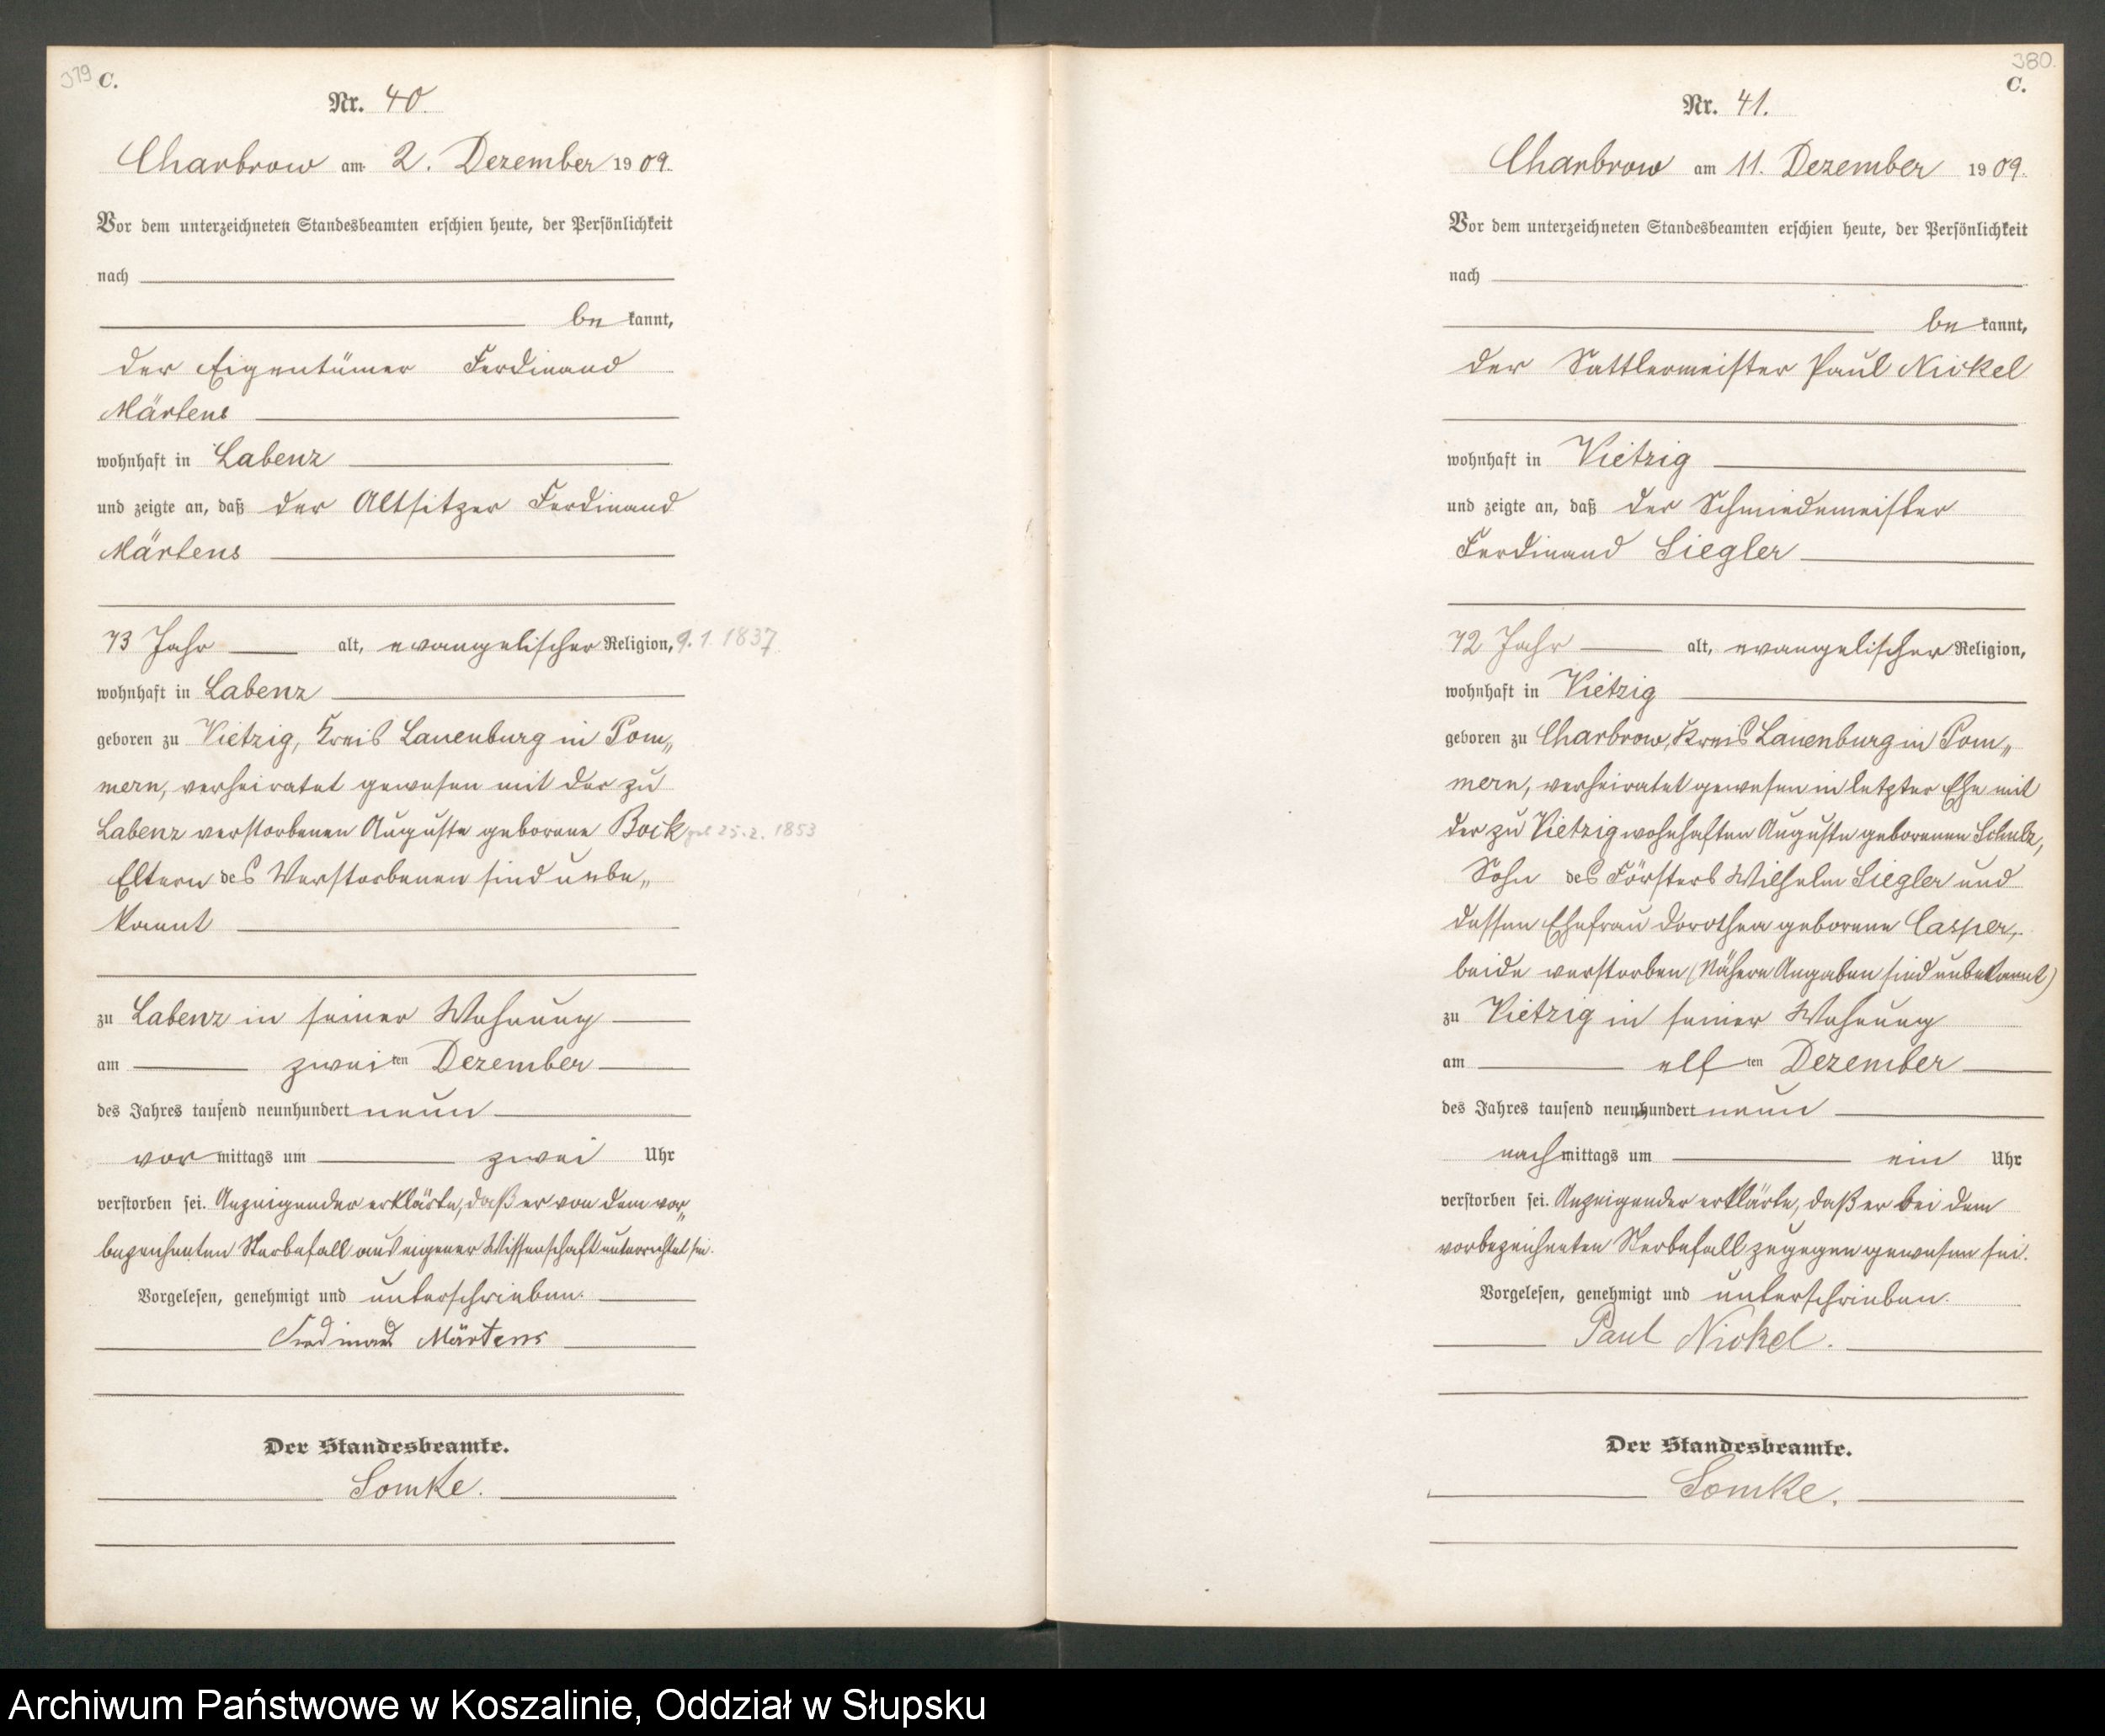 379
C.
Nr. 40.
Charbrow am 2. Dezember 1909.
Vor dem unterzeichneten Standesbeamten erschien heute, der Persönlichkeit
nach
bekannt,
der Eigentümer Ferdinand
Märtens
wohnhaft in Labenz
und zeigte an, daß der Altsitzer Ferdinand
Märtens
73 Jahr alt, evangelischer Religion, 9.1.1837
wohnhaft in Labenz
geboren zu Vietzig, Kreis Lauenburg in Pom„
mern, verheiratet gewesen mit der zu
Labenz verstorbenen Auguste geborene Bock 25.2.1853
Eltern des Verstorbenen sind unbe„
kannt
zu Labenz in seiner Wohnung
am zweiten Dezember
des Jahres tausend neunhundert neun
vormittags um zwei Uhr
verstorben sei. Anzeigender erklärte, daß er von dem vor„
bezeichneten Sterbefall aus eigener Wissenschaft unterrichtet sei.
Vorgelesen, genehmigt und unterschrieben.
Ferdinand Märtens
Der Standesbeamte.
Somke.
380.
C.
Nr. 41.
Charbrow am 11. Dezember 1909.
Vor dem unterzeichneten Standesbeamten erschien heute, der Persönlichkeit
nach
bekannt,
der Sattlermeister Paul Nickel
wohnhaft in Vietzig
und zeigte an, daß der Schmiedemeister
Ferdinand Siegler
72 Jahr alt, evangelischer Religion,
wohnhaft in Vietzig
geboren zu Charbrow, Kreis Lauenburg in Pom„
mern, verheiratet gewesen in letzter Ehe mit
der zu Vietzig wohnhaften Auguste geborenen Schulz,
Sohn des Försters Wilhelm Siegler und
dessen Ehefrau Dorothea geborene Casper,
beide verstorben (Nähere Angaben sind unbekannt)
zu Vietzig in seiner Wohnung
am elften Dezember
des Jahres tausend neunhundert neun
nachmittags um ein Uhr
verstorben sei. Anzeigender erklärte, daß er bei dem
vorbezeichneten Sterbefall zugegen gewesen sei.
Vorgelesen, genehmigt und unterschrieben.
Paul Nickel.
Der Standesbeamte.
Somke.
Archiwum Państwowe w Koszalinie, Oddział w Słupsku